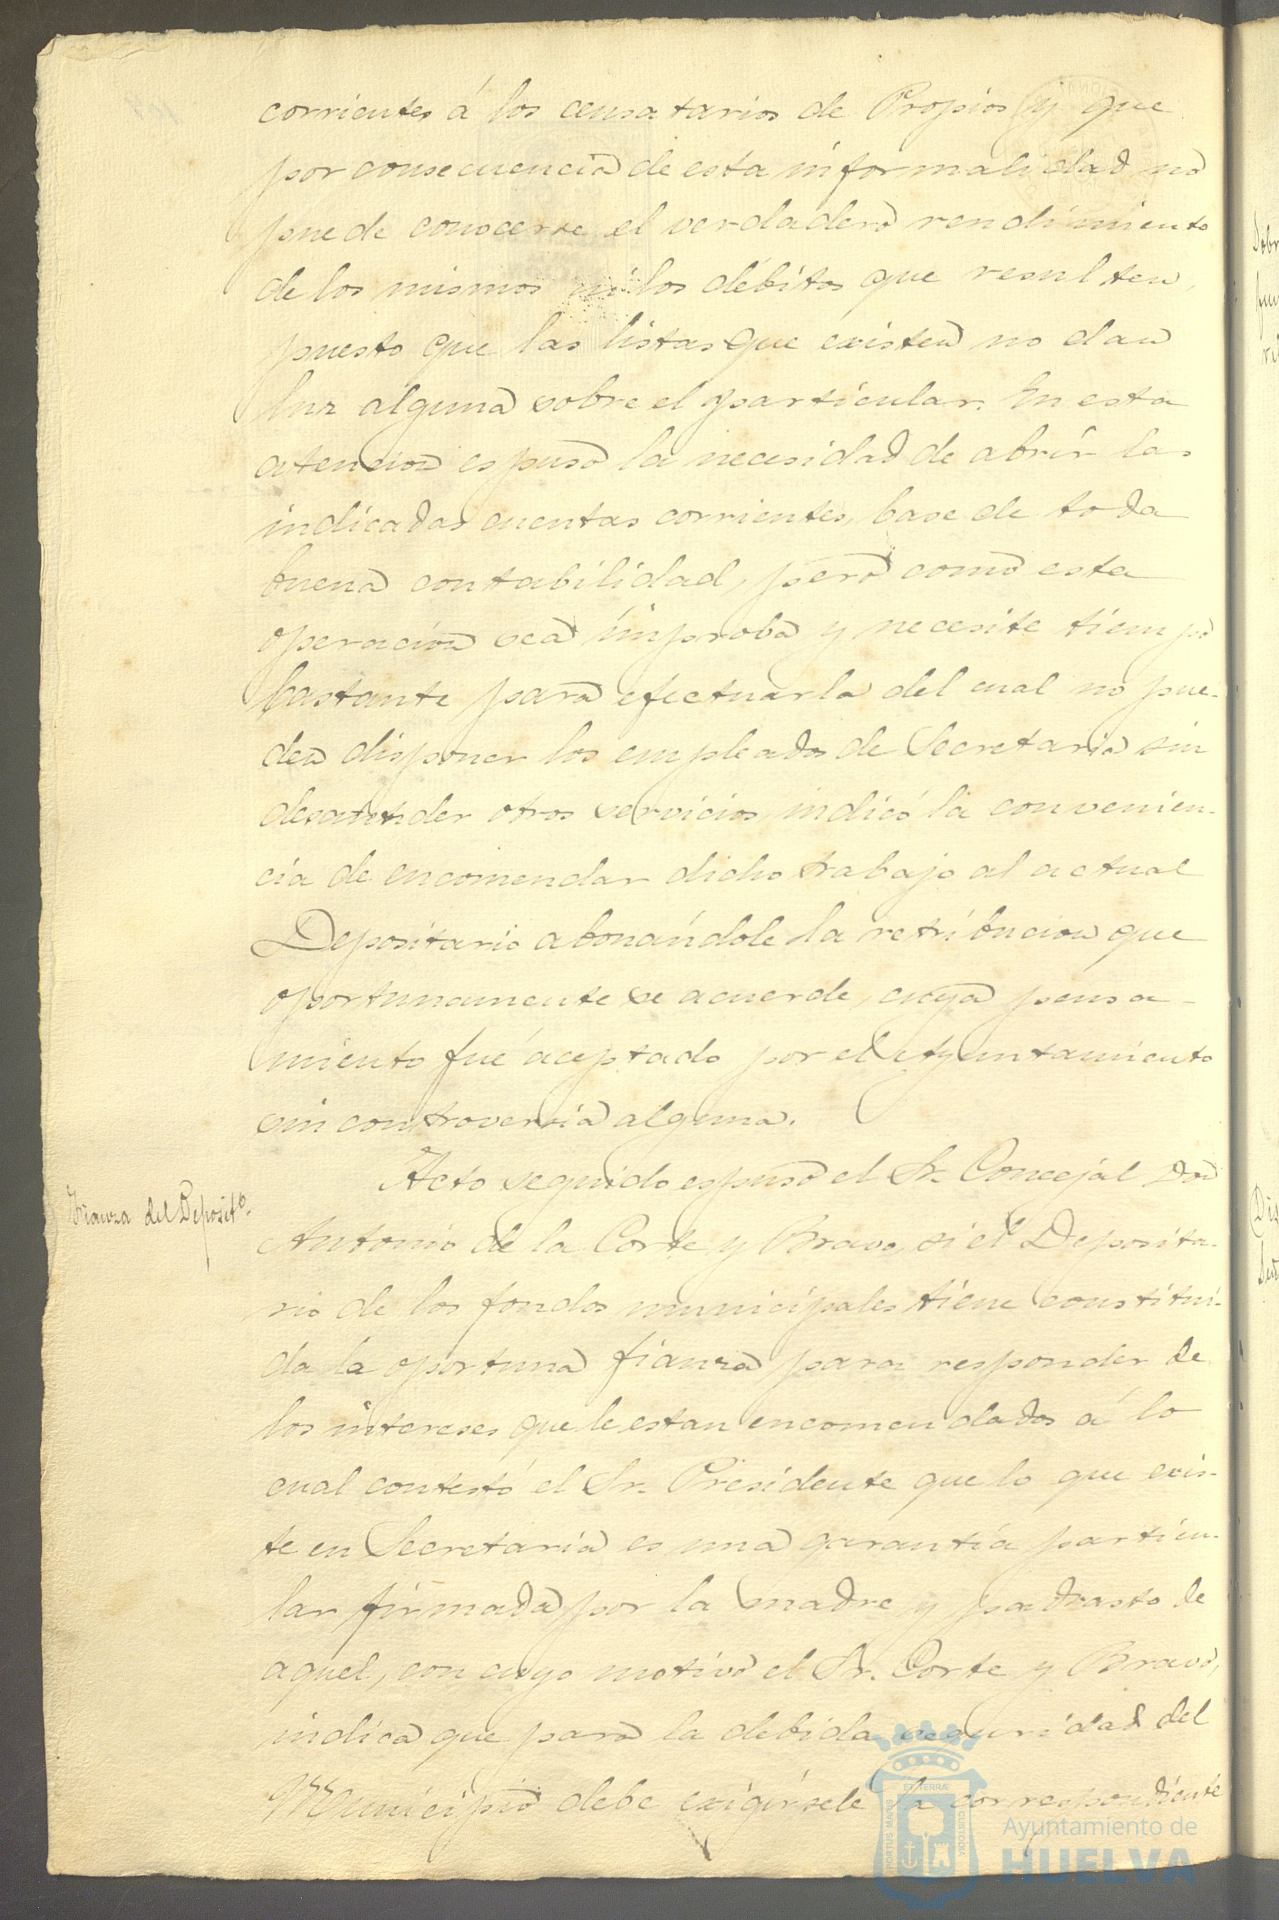 corrientes á los censatarios de Propios y que
por consecuencia de esta informalidad no
puede conocerse el verdadero rendimiento
de los mismos ni los débitos que resulten,
puesto que las listas que existen no dan
luz alguna sobre el particular. En esta
atencion espuso la necesidad de abrir las
indicadas cuentas corrientes, base de toda
buena contabilidad, pero como esta
operacion sea ímproba y necesite tiempo
bastante para efectuarla del cual no pue-
den disponer los empleados de Secretaria sin
desatender otros servicios, indicó la convenien-
cia de encomendar dicho trabajo al actual
Depositario abonándole la retribucion que
oportunamente se acuerde, cuyo pensa-
miento fué aceptado por el Ayuntamiento
sin controversia alguna.
Fianza del Deposit.º
Acto seguido espuso el Sr. Concejal Don
Antonio de la Corte y Bravo, si el Deposita-
rio de los fondos municipales tiene constitui-
da la oportuna fianza para responder de
los intereses que le estan encomendados á lo
cual contestó el Sr. Presidente que lo que exis-
te en Secretaria es una garantia particu-
lar firmada por la madre y padrasto de
aquel, con cuyo motivo el Sr. Corte y Bravo,
indica que para la debida seguridad del
Municipio debe exigírsele la correspondiente
Ayuntamiento de
HUELVA
PORTUS MARIS ET TERRÆ CUSTODIA